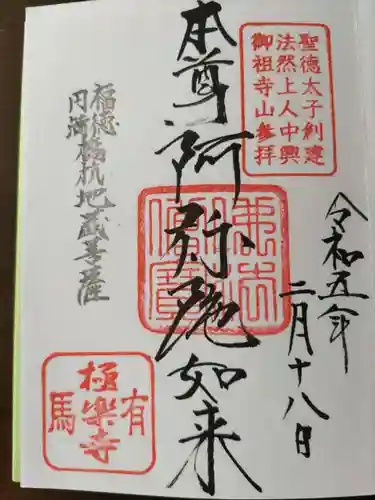 聖徳太子創建
法然上人中興
御祖寺山参拝
令和五年
二月十八日
本尊阿弥陀如来
福徳
円満
地蔵菩薩
極楽寺
有馬